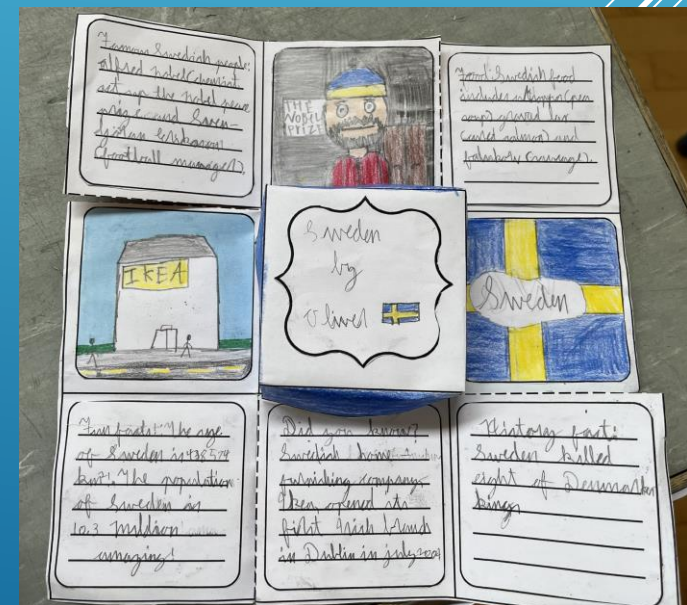 Famous Swedish people:
alfred nobel (chemist
set up the nobel peace
prize and Sven-
göran eriksson
(football manager).
THE
NOBEL
PRIZE
Food: Swedish food
includes (pea
soup) gravad lax
(cured salmon) and
falukorv (sausage).
IKEA
Sweden
by
Oliver
Sweden
Fun facts: The age
of Sweden is 438,579
km²! The population
of Sweden is
10.3 million
amazing!
Did you know?
Swedish home
furnishing company
Ikea opened its
first Irish branch
in Dublin in july 2009
History fact:
Sweden killed
eight of Denmarks
kings